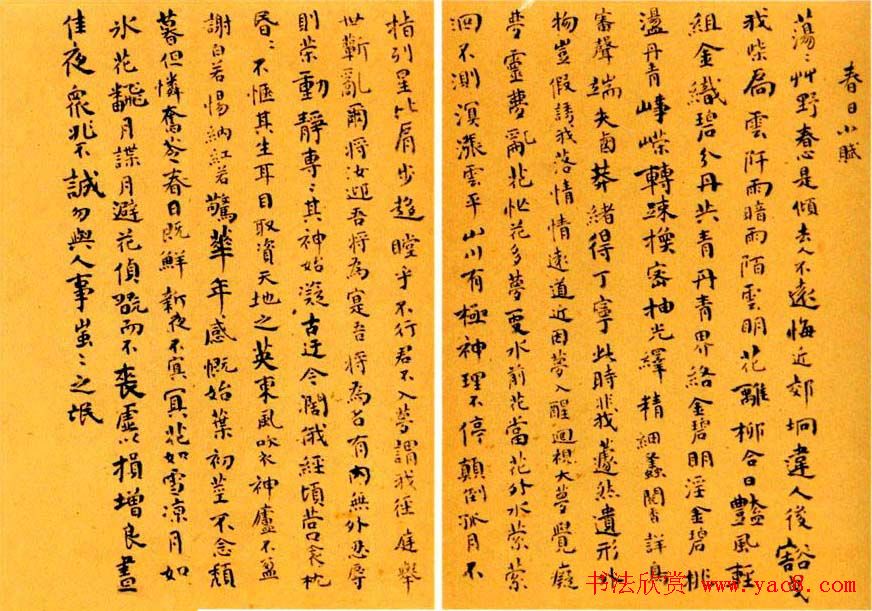 春日小賦
蕩〻艸野春心是傾去人不遠悔近郊坰違人後豁戈
我柴扃雲阡雨暗雨陌雲明花離柳合日豔風輕
組金織碧分丹共青丹青界絡金碧明淫金碧排
盪丹青峰嶸轉疎換密抽光繹精細蠡聞香詳鳥
審聲端夫鹵莽緒得丁寧此時我蘧然遺形外
物豈假誘我落情情遠道近因夢入醒迴視大夢覺癡
夢靈夢亂花忙花多夢更水前花當花外水縈縈
洄不測溟漲雲平山川有極神理不停顛倒孤月不
指列星比肩步趨瞠乎不行君不入夢謂我徑庭舉
世蘄亂爾將汝迎吾將為寔吾將為名有內無外忍辱
則榮動靜專〻其神始凝古迂今闊餓經頃營口衾枕
昏〻不愜其生耳目取資天地之英東風咏衣神廬不盈
謝白若惕納紅若驚華年感慨始葉初莖不念頹
暮但憐奮苓春日既鮮新夜不寘冥花如雪涼月如
氷花翻月諜月避花偵翫而不喪虛以損增良晝
佳夜眾非不誠勿與人事蚩〻之氓
书法欣赏
www.yac8.com